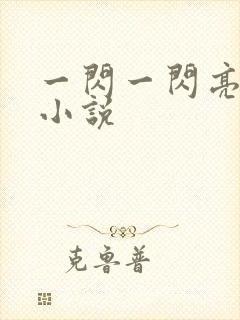 一閃一閃亮
小說
克魯普